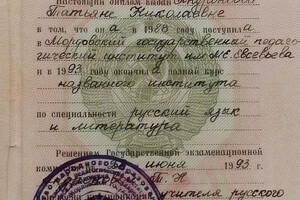 Настоящий диплом выдан
Татьяне Николаевне
в том, что она в 1988 поступила
в Мордовский государственный педаго-
гический институт им. М.Е. Евсевьева
и в 1993 окончила полный курс
названного института
по специальности русский язык
и литература
Решением Государственной экзаменационной
июня 1993 г.
учителя русского